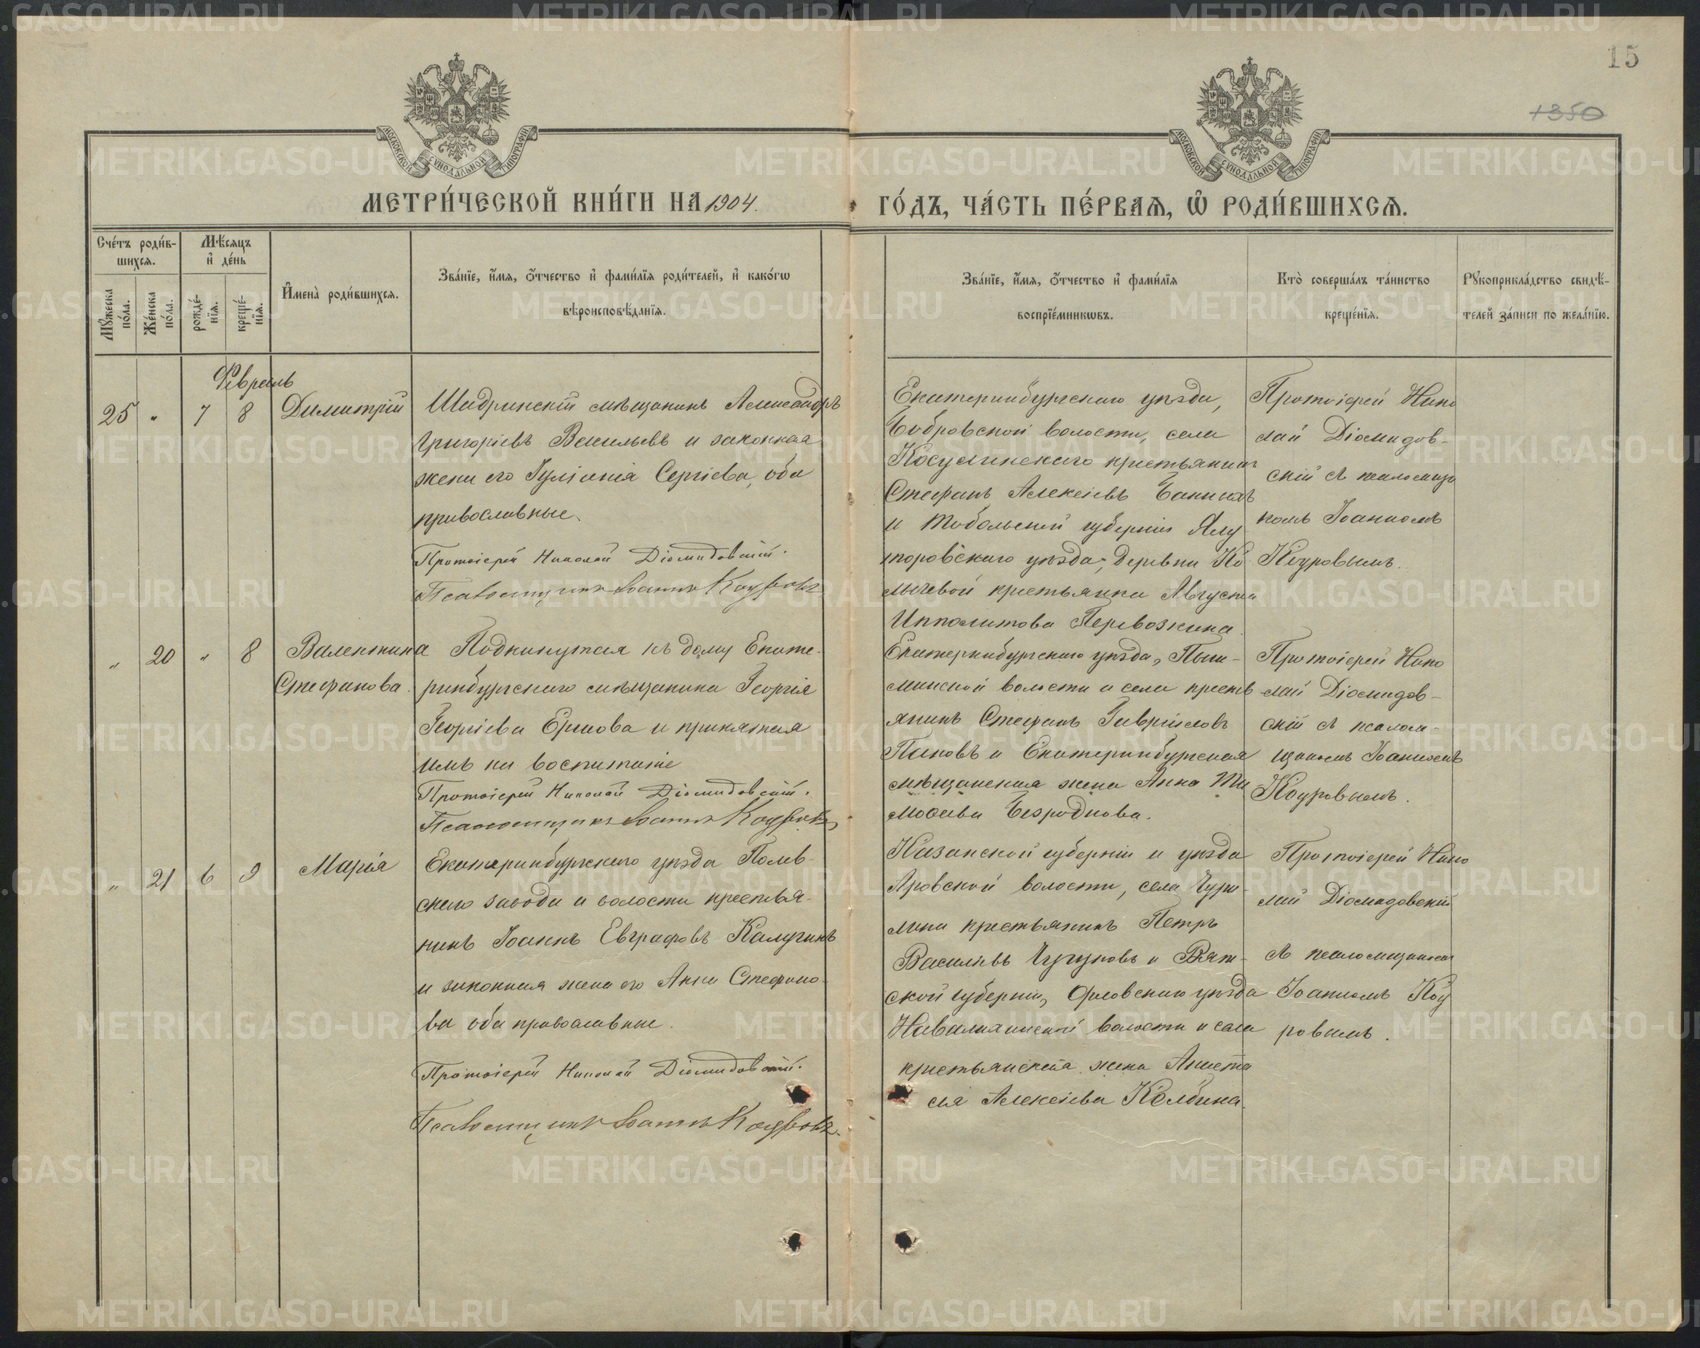 15
1350
МЕТРИ́ЧЕСКОЙ КНИ́ГИ НА 1904.
ГО́ДЪ, ЧА́СТЬ ПЕ́РВАЯ, Ѡ РОДИ́ВШИХСЯ.
Сче́тъ роди́в-
шихся.
Мꙋ́жеска по́ла.
Же́нска по́ла.
Мѣ́сяцъ и҆ де́нь
рожде́-
нїя.
креще́-
нїя.
И҆мена̀ роди́вшихся.
Зва́нїе, и҆́мя, о҆́тчество и҆ фами́лїя роди́телей, и҆ како́гѡ
вѣроисповѣ́данїя.
Зва́нїе, и҆́мя, о҆́тчество и҆ фами́лїя
воспрїе́мникѡвъ.
Кто̀ соверша́лъ та́инство
креще́нїя.
Рꙋкоприкла́дство свидѣ́-
телей за́писи по жела́нїю.
Февраль
25 " 7 8 Димитрій
Шадринскій мѣщанинъ Александръ
Григоріевъ Васильевъ и законная
жена его Іуліанія Сергіева, оба
православные.
Протоіерей Николай Діомидовскій.
Псаломщикъ Іоаннъ Коуровъ
Екатеринбургскаго уѣзда,
Бобровской волости, села
Косулинскаго крестьянинъ
Стефанъ Алексіевъ
и Тобольской губерніи Ялу
торовскаго уѣзда, деревни
крестьянка Августа
Ипполитова Перевозкина.
Протоіерей Нико
лай Діомидов-
скій съ псаломщи
комъ Іоанномъ
Коуровымъ.
" 20 " 8 Валентина
Стефанова.
Подкинутая къ дому Екате-
ринбургскаго мѣщанина Георгія
Георгіева Ершова и принятая
имъ на воспитаніе
Протоіерей Николай Діомидовскій.
Псаломщикъ Іоаннъ Коуровъ
Екатеринбургскаго уѣзда, Пыш-
минской волости и села кресть
янинъ Стефанъ Гавріиловъ
и Екатеринбургская
мѣщанская жена Анна Ти
моѳеева Безроднова.
Протоіерей Нико
лай Діомидов-
скій съ псалом-
щикомъ Іоанномъ
Коуровымъ.
" 21 6 9 Марія
Екатеринбургскаго уѣзда Полев-
скаго завода и волости крестья-
нинъ Іоаннъ Евграфовъ Калугинъ
и законная жена его Анна Стефано-
ва оба православные.
Протоіерей Николай Діомидовскій.
Псаломщикъ Іоаннъ Коуровъ.
Казанской губерніи и уѣзда
волости, села Чури-
лина крестьянинъ Петръ
Васильевъ Чугуновъ и Вят-
ской губерніи, Орловскаго уѣзда
волости и села
крестьянская жена Анаста
сія Алексіева Колбина.
Протоіерей Нико
лай Діомидовскій
съ псаломщикомъ
Іоанномъ Коу
ровымъ.
METRIKI.GASO-URAL.RU